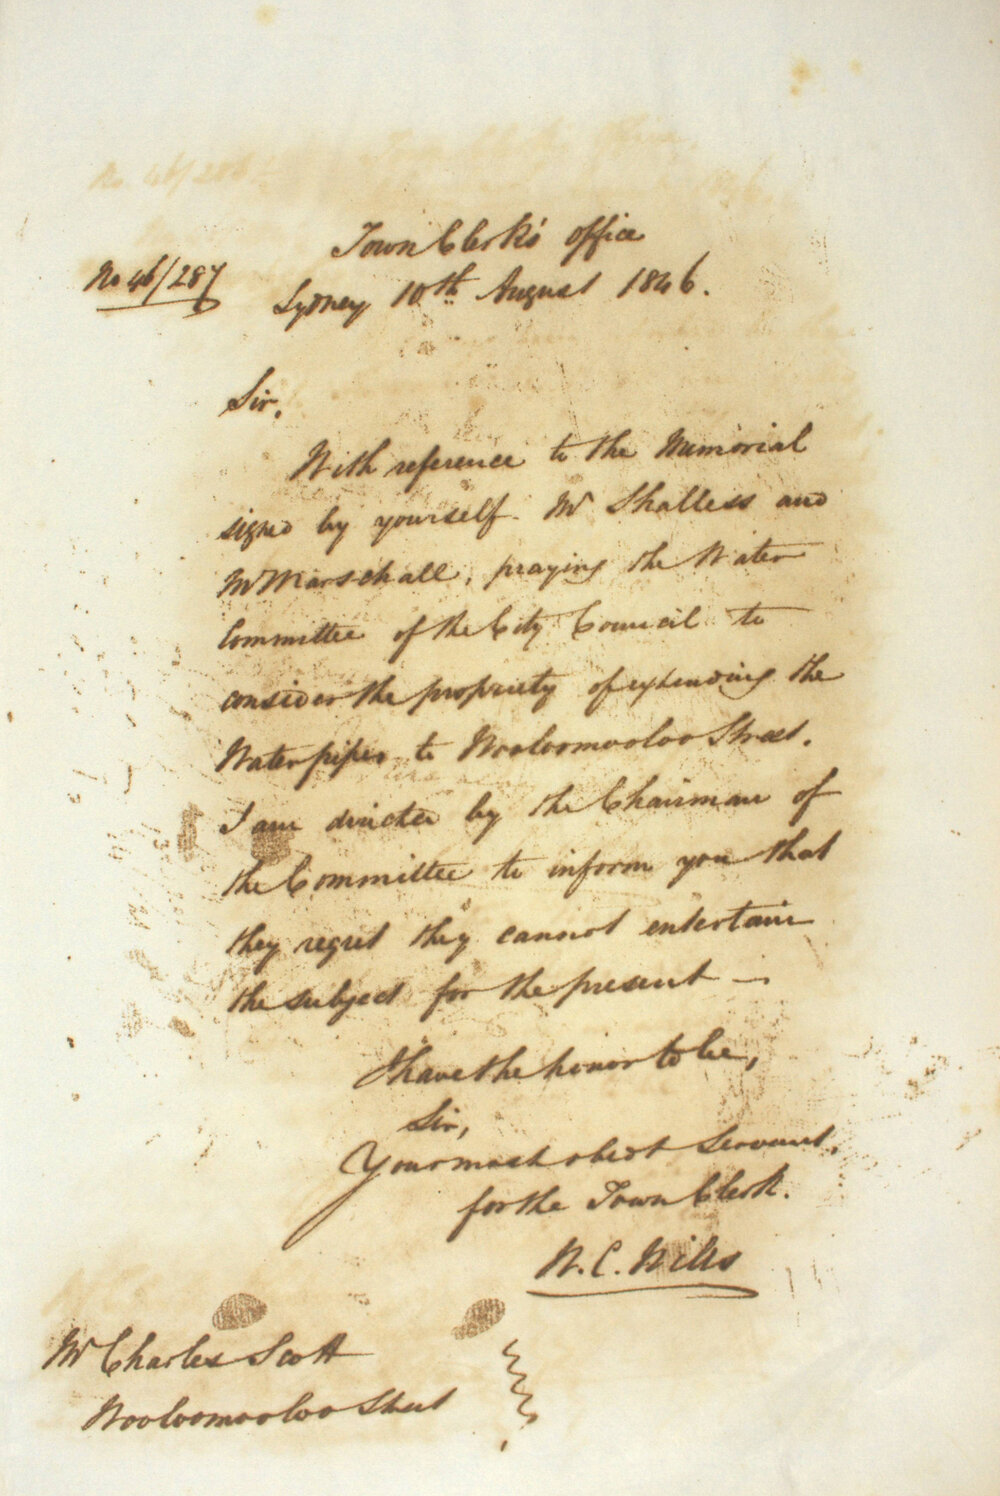 Town Clerk's office
No 46/287
Sydney 10th August 1846.
Sir,
With reference to the Memorial
signed by yourself. Mr Shalless and
Mr Marschall, praying the Water
Committee of the City Council to
consider the propriety of extending the
Water pipes to Wooloomooloo Street.
I am directed by the Chairman of
the Committee to inform you that
they regret they cannot entertain
the subject for the present —
I have the honor to be,
Sir,
Your most obedt Servant,
for the Town Clerk.
W. C. Wills
Mr Charles Scott
Wooloomooloo Street